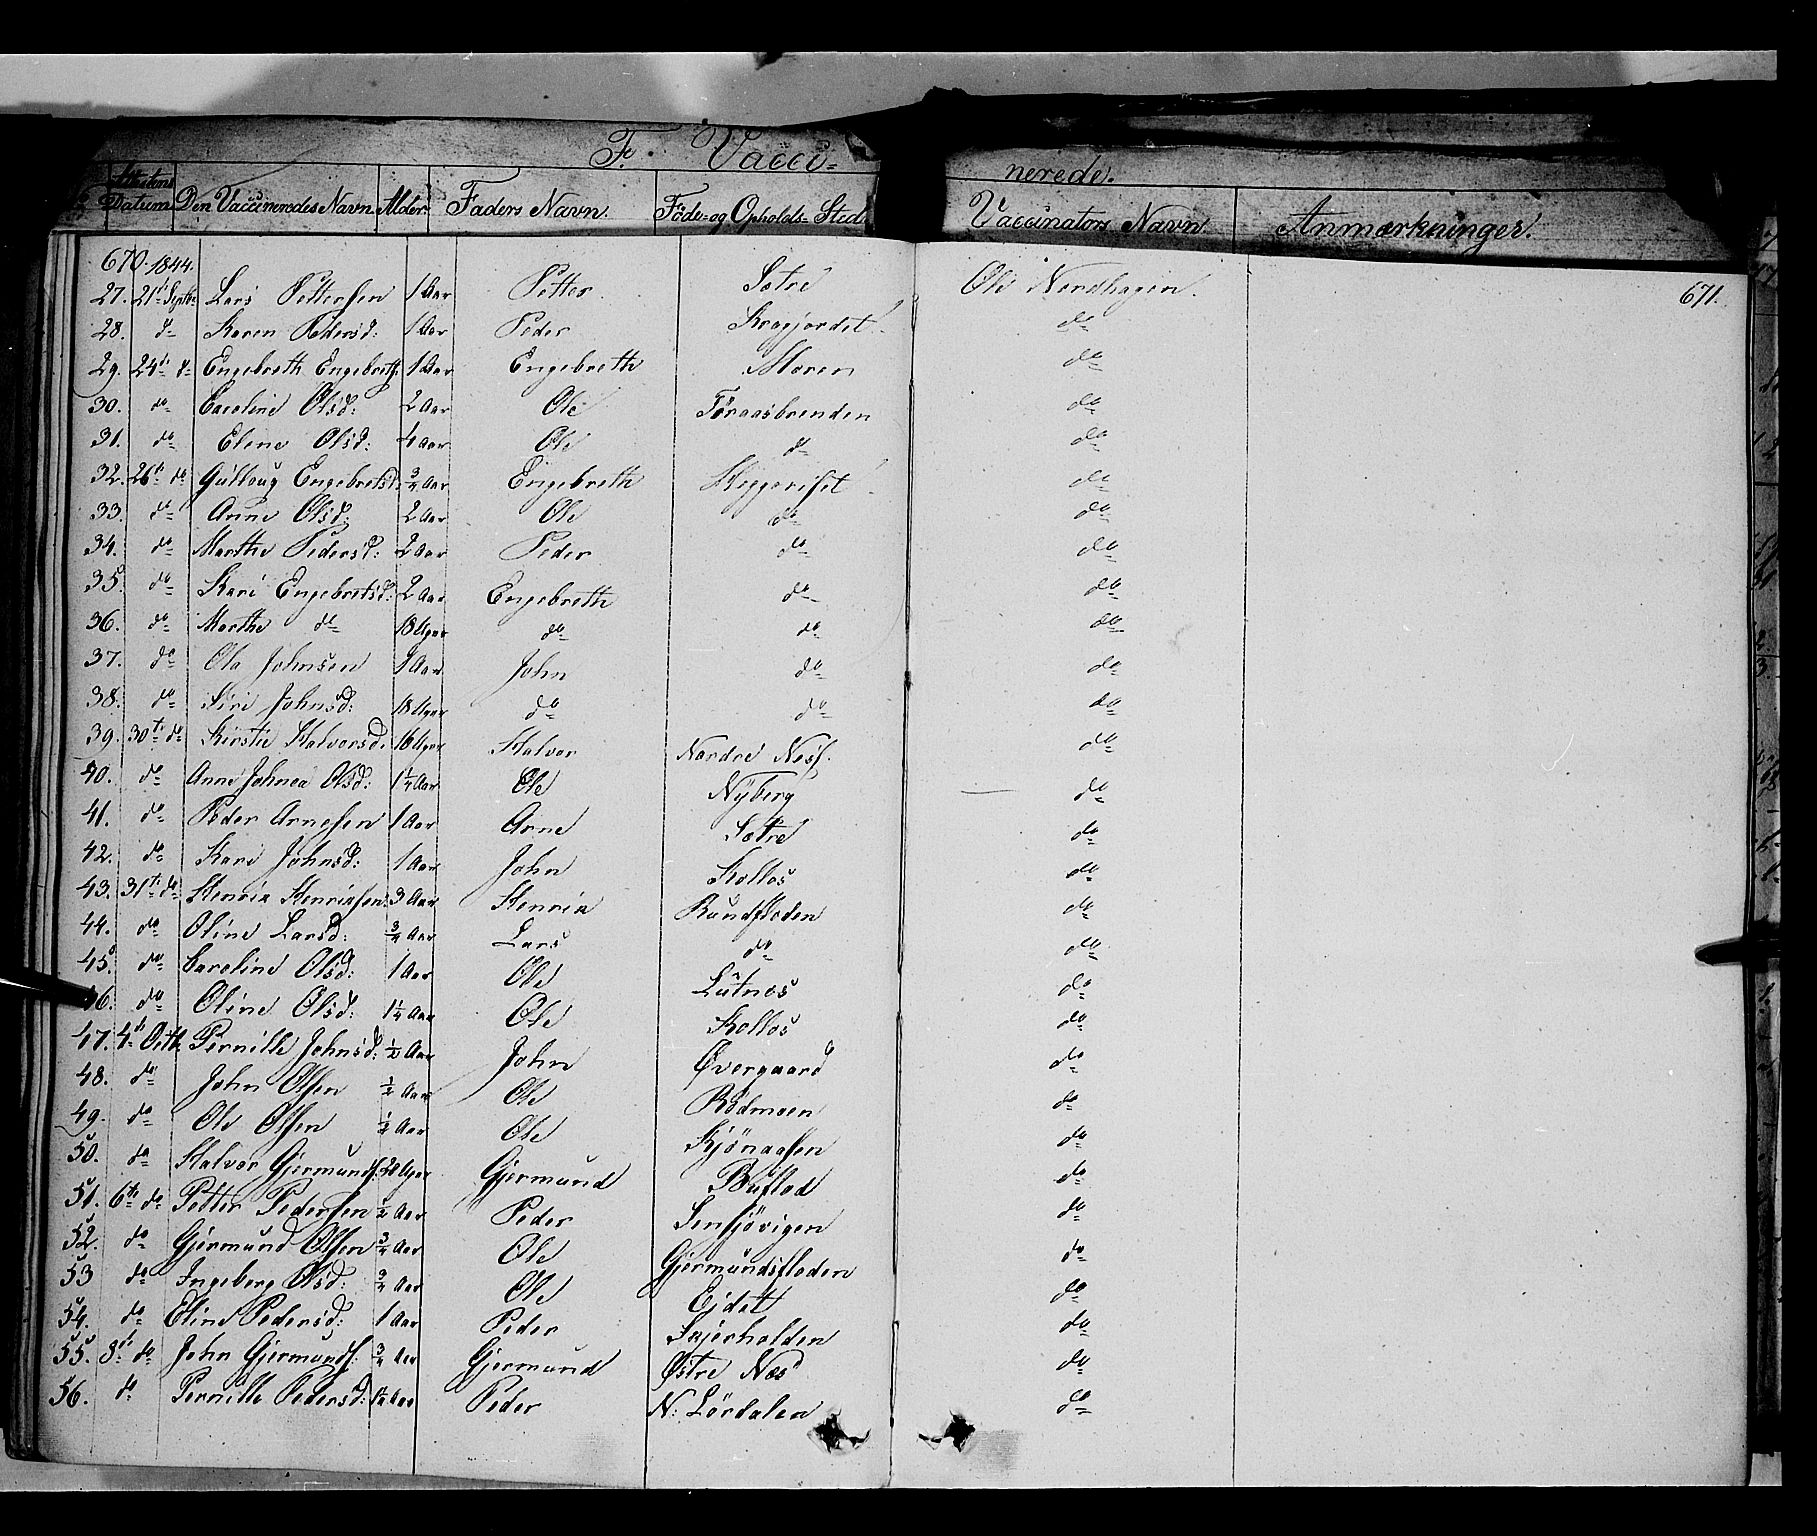 F. Vacci- nerede.
Attestens Datum Den Vaccineredes Navn Alder Faders Navn. Föde- og Opholds-Sted Vaccinators Navn Anmærkninger.
670. 1844.
671.
27. 21de Septbr Lars Pettersen 1 Aar Petter Sætre Ole Nordhagen.
28. do Karen Pedersd: 1 Aar Peder do
29. 24de do Engebreth Engebrethsen 1 Aar Engebreth Moren do
30. do Caroline Olsd: 2 Aar Ole Föraasbrenden do
31. do Eline Olsd: 4 Aar Ole do do
32. 26de do Gülloug Engebretsd: 3/4 Aar Engebreth do
33. do Anne Olsd: 2 Aar Ole do do
34. do Marthe Pedersd: 2 Aar Peder do do
35. do Kari Engebretsd: 2 Aar Engebreth do do
36. do Marthe do 18 Uger do do do
37. do Ole Johnsen Aar John do do
38. do Siri Johnsd: 18 Uger do do do
39. 30te do Kirstie Halvorsd. 16 Uger Halvor Nordre Nesf. do
40. do Anne Johnea Olsd: 1 1/4 Aar Ole Nÿberg do
41. do Peder Arnesen 1 Aar Arne Sætre do
42. do Kari Johnsd: 1 Aar John Kollos do
43. 31te do Henrik Henriksen 3 Aar Henrik Rundfloden do
44. do Oline Larsd: 3/4 Aar Lars do do
45. do Caroline Olsd: 1 Aar Ole Lutnes do
46. do Oline Olsd: 1 1/4 Aar Ole Kollos do
47. 4de Octb. Pernille Johnsd: 1/2 Aar John Øvergaard do
48. do John Olsen 1/2 Aar Ole Rödmoen do
49. do Ole Olsen 1/2 Aar Ole Kjönaasen do
50. do Halvor Gjermunds. 20 Uger Gjermund Buflod do
51. 6te do Petter Pedersen 1/2 Aar Peder Sensjövigen do
52. do Gjermund Olsen 3/4 Aar Ole Gjermundsfloden do
53 do Ingeborg Olsd: 3/4 Aar Ole Ejdet do
54. do Eline Pedersd: 1 Aar Peder Skjerholden do
55. 8de do John Gjermunds. 3/4 Aar Gjermund Østre Næs do
56. do Pernille Pedersd: 1 1/2 Aar Peder N: Lördalen do